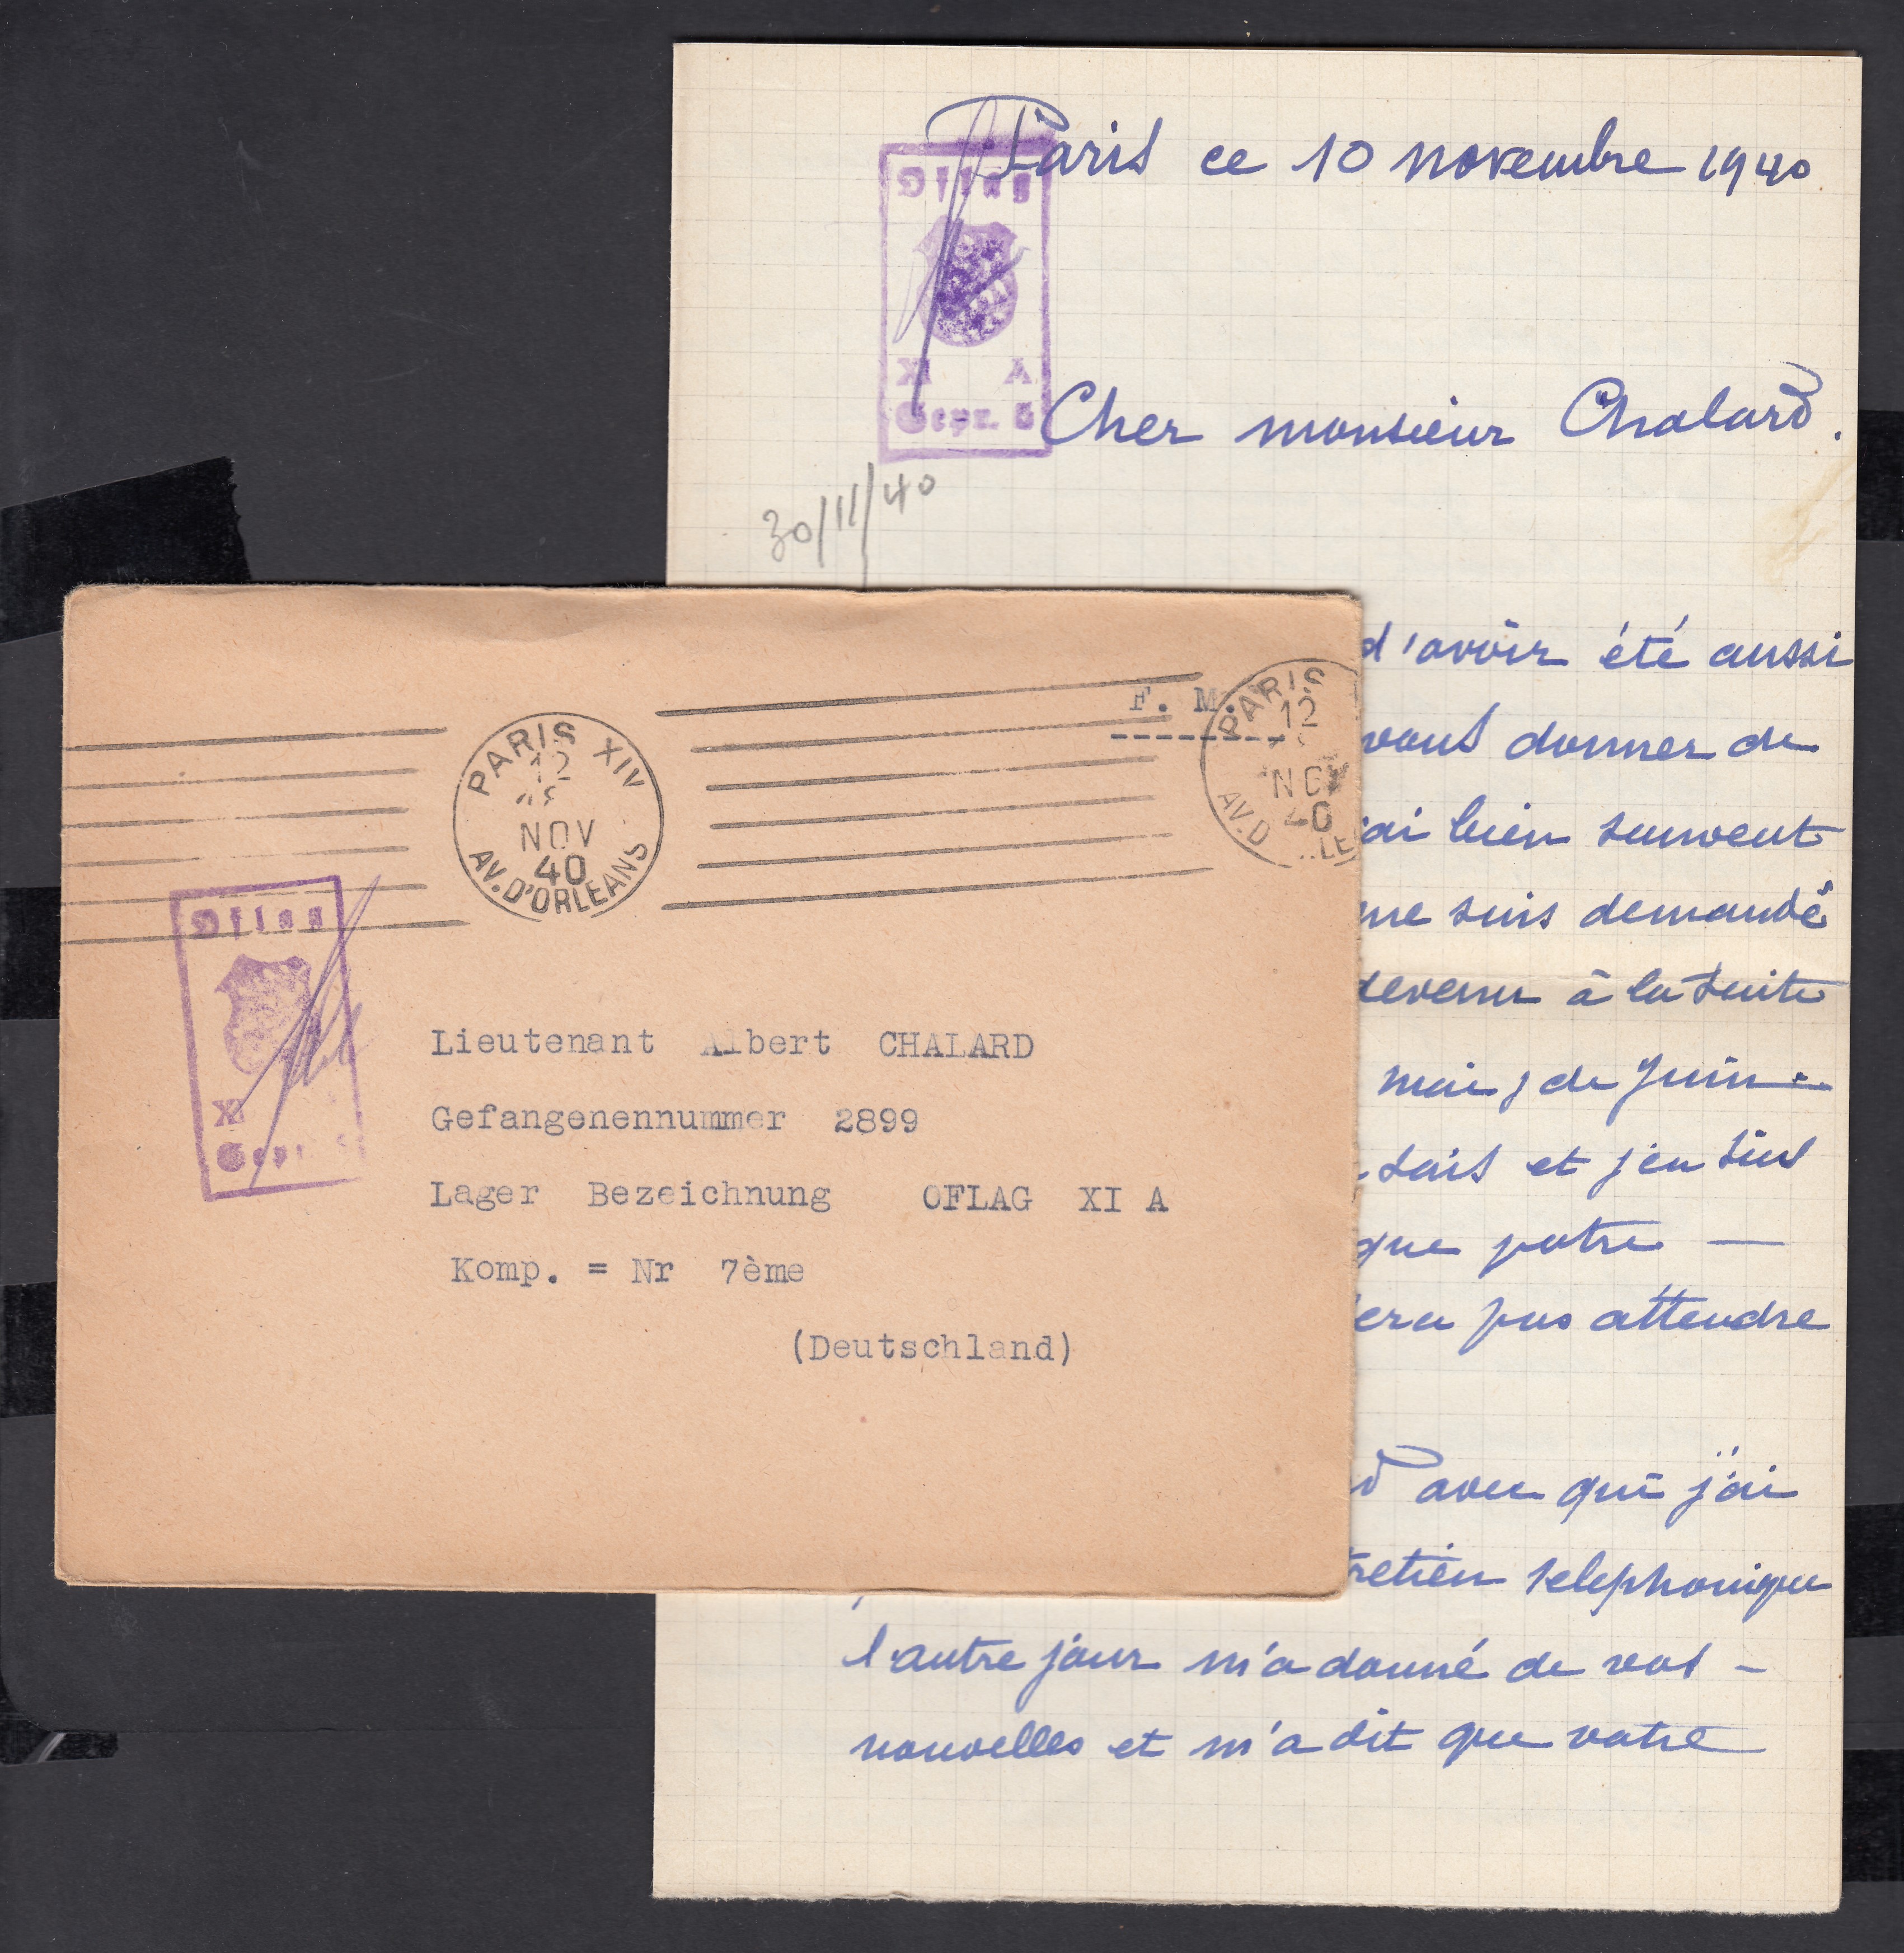 Paris ce 10 novembre 1940
Oflag
XI A
Gepr. 5
Cher monsieur Chalard.
30/11/40
d'avoir été aussi
vous donner de
ai bien souvent
me suis demandé
devenu à la suite
mai, de Juin.
sais et j'en suis
que votre —
era pas attendre
avec qui j'ai
tretien telephonique
l'autre jour m'a donné de vos -
nouvelles et m'a dit que votre
F. M.
PARIS XIV
12
NOV
40
AV. D'ORLEANS
PARIS
12
NOV
40
AV. D LE
Oflag
XI
Gepr.
Lieutenant Albert CHALARD
Gefangenennummer 2899
Lager Bezeichnung OFLAG XI A
Komp. = Nr 7ème
(Deutschland)